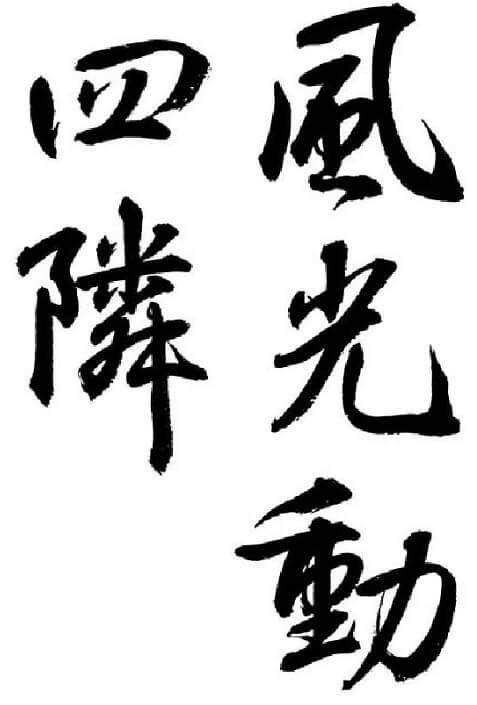 風光動
四隣